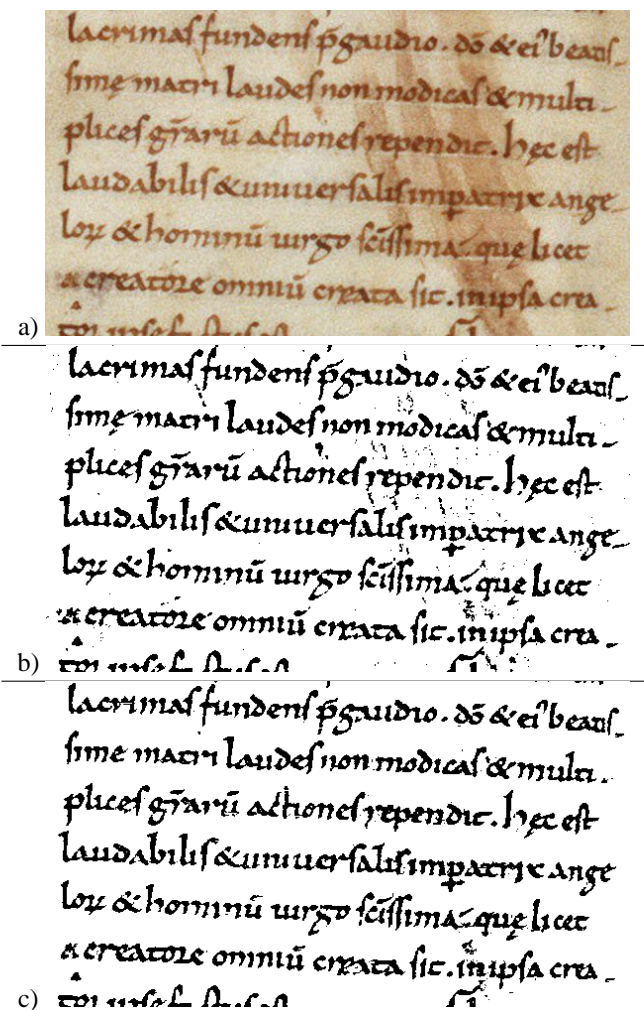 lacrimaſ fundenſ p̄gaudio. dō & ei' beatiſ-
ſimę matri laudeſ non modicaſ & multi-
pliceſ gr̄arū actioneſ rependit. hęc eſt
laudabiliſ & uniuerſaliſ imꝑatrix ange-
loꝝ & hominū uirgo ſc̄iſſima. quę licet
a creatore omniū creata ſit. in ipſa crea-
a)
lacrimaſ fundenſ p̄gaudio. dō & ei' beatiſ-
ſimę matri laudeſ non modicaſ & multi-
pliceſ gr̄arū actioneſ rependit. hęc eſt
laudabiliſ & uniuerſaliſ imꝑatrix ange-
loꝝ & hominū uirgo ſc̄iſſima. quę licet
a creatore omniū creata ſit. in ipſa crea-
b)
lacrimaſ fundenſ p̄gaudio. dō & ei' beatiſ-
ſime matri laudeſ non modicaſ & multi-
pliceſ gr̄arū actioneſ rependit. hęc eſt
laudabiliſ & uniuerſaliſ imꝑatrix ange
loꝝ & hominū uirgo ſc̄iſſima. quę licet
a creatore omniū creata ſit. in ipſa crea-
c)